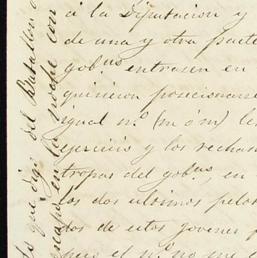 á la Diputacion y
de una y otra parte
gob.ⁿᵒˢ entrasen en
quisieron posecionarse
igual n.º (m ó m) le
ejercicio y los rechas
tropas del gob.ⁿᵒ, en
los dos ultimos pelot
dos de estos jovenes p
pero el n.º no era d
que dijo del Batallon d
noche con